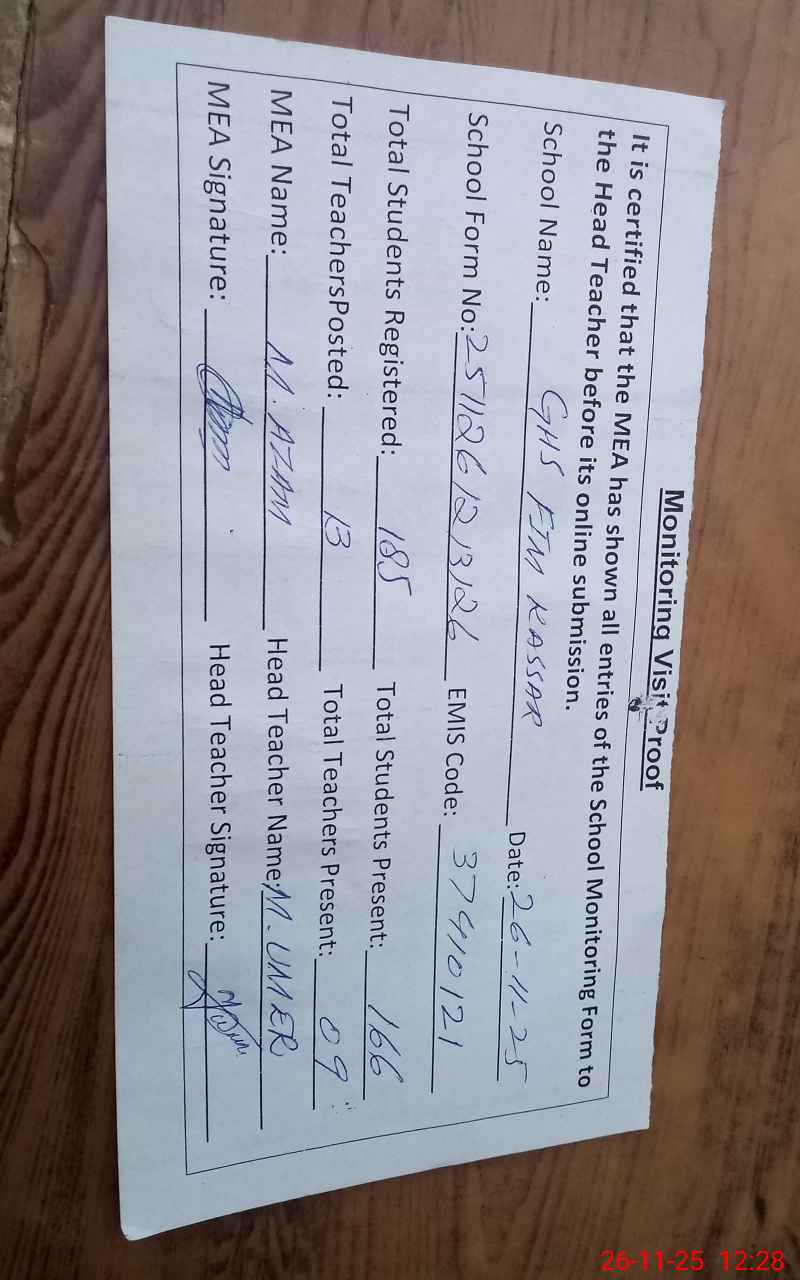 Monitoring Visit Proof
It is certified that the MEA has shown all entries of the School Monitoring Form to
the Head Teacher before its online submission.
School Name: GHS FJM KASSAR Date: 26-11-25
School Form No: 2511261213126 EMIS Code: 37410121
Total Students Registered: 185 Total Students Present: 166
Total TeachersPosted: 13 Total Teachers Present: 09
MEA Name: M. AZAM Head Teacher Name: M. UMER
MEA Signature: Head Teacher Signature:
26-11-25 12:28